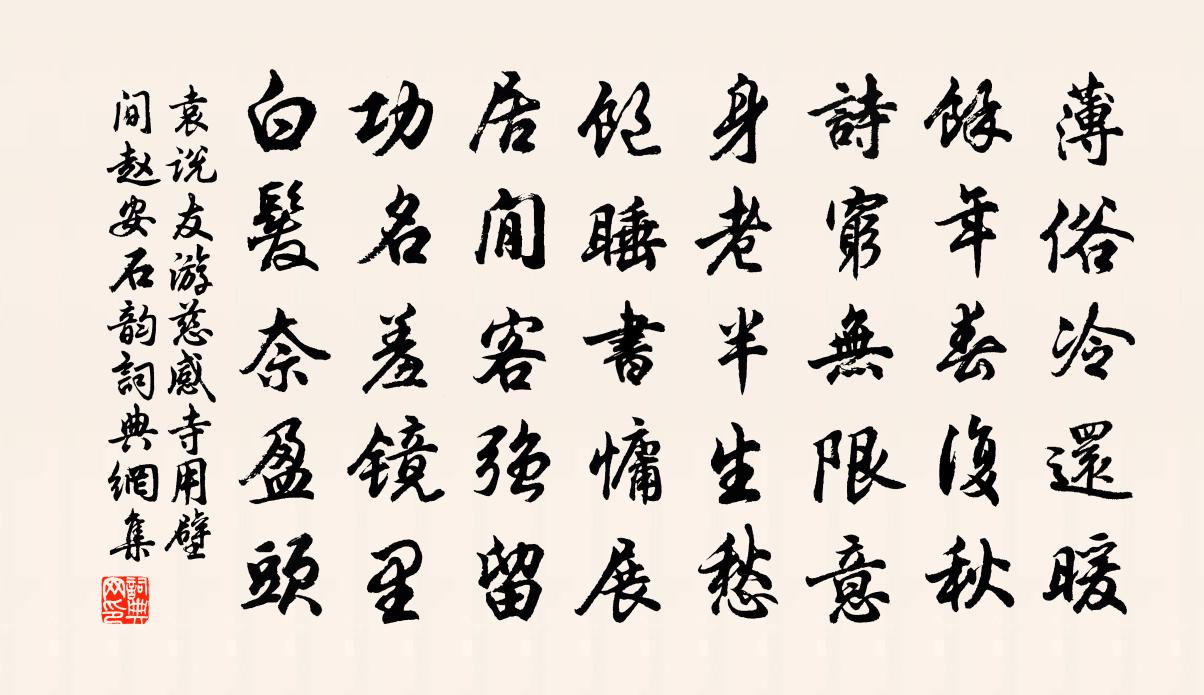 薄俗冷還暖
餘年春復秋
詩窮無限意
身老半生愁
飽睡書慵展
居閒客強留
功名羞鏡里
白髮奈盈頭
袁说友游慈感寺用壁
间赵安石韵詞典網集
詞典网印